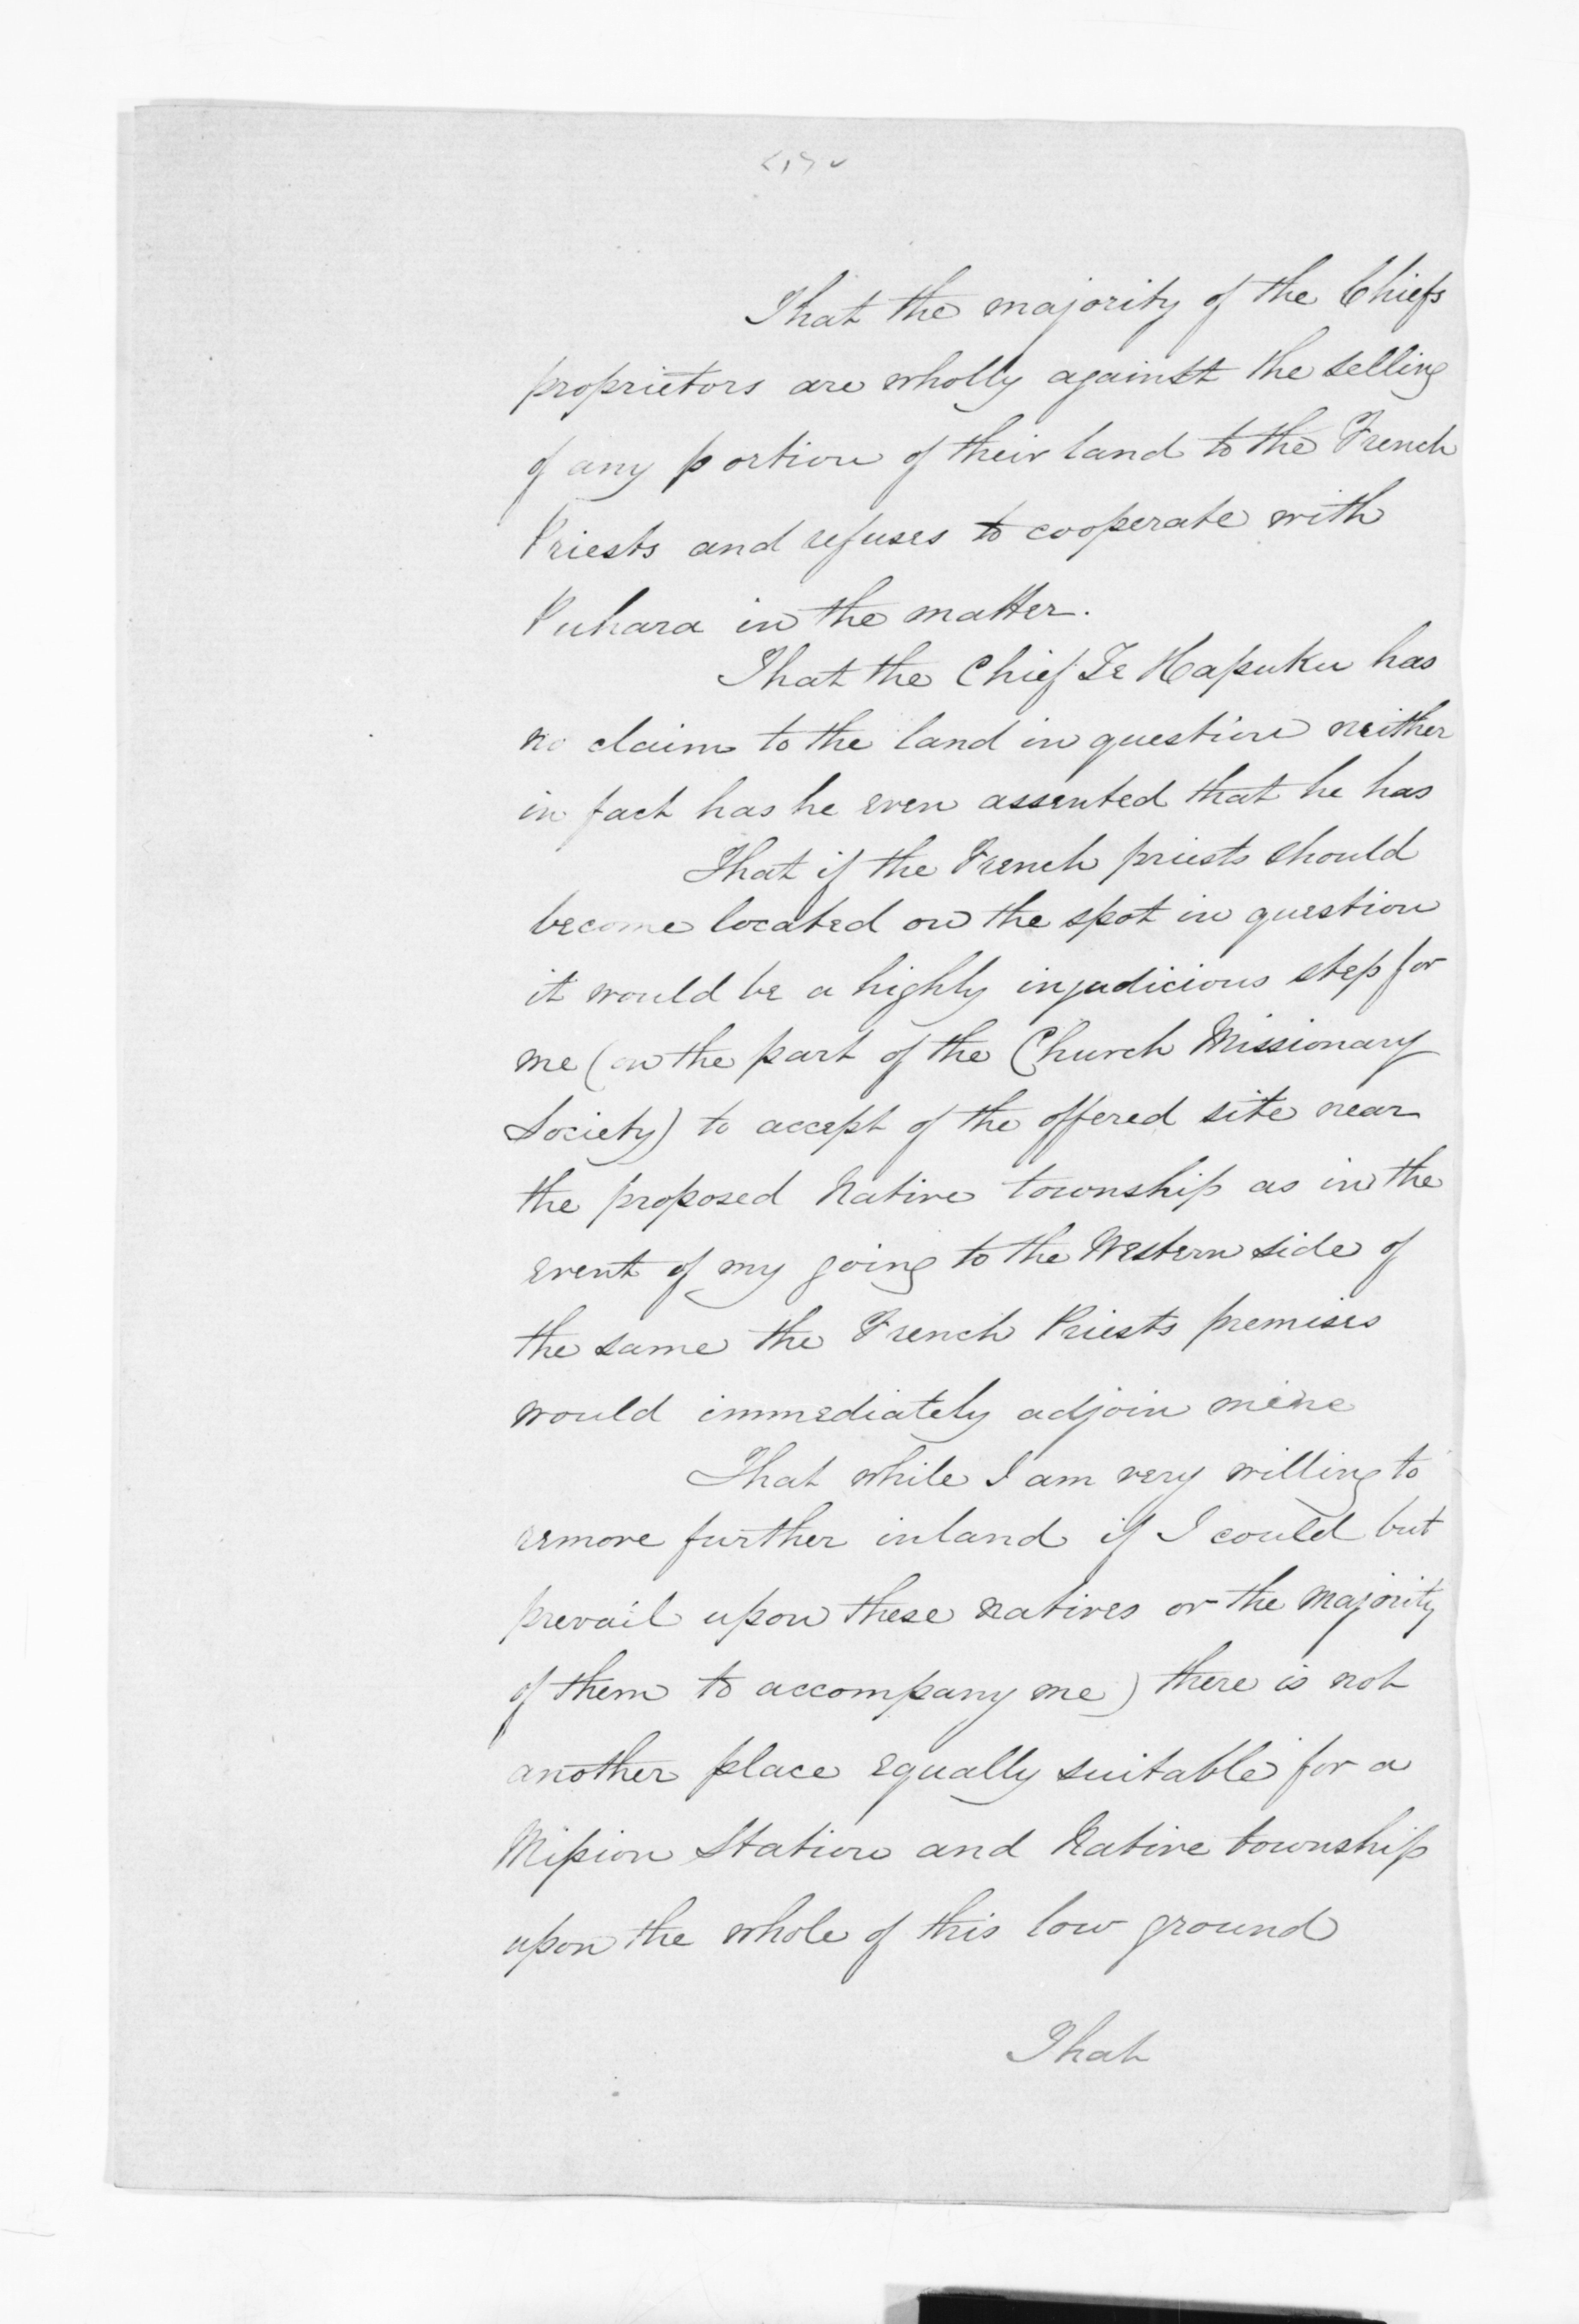 That the majority of the Chiefs
proprietors are wholly against the selling
of any portion of their land to the French
Priests and refuses to cooperate with
Puhara in the matter.
That the Chief Te Hapuku has
no claim to the land in question neither
in fact has he even assented that he has
That if the French priests should
become located on the spot in question
it would be a highly injudicious step for
me (on the part of the Church Missionary
Society) to accept of the offered site near
the proposed Native township as in the
event of my going to the Western side of
the same the French Priests premises
would immediately adjoin mine
That while I am very willing to
remove further inland if I could but
prevail upon these natives or the majority
of them to accompany me) there is not
another place equally suitable for a
Mission Station and Native township
upon the whole of this low ground
That